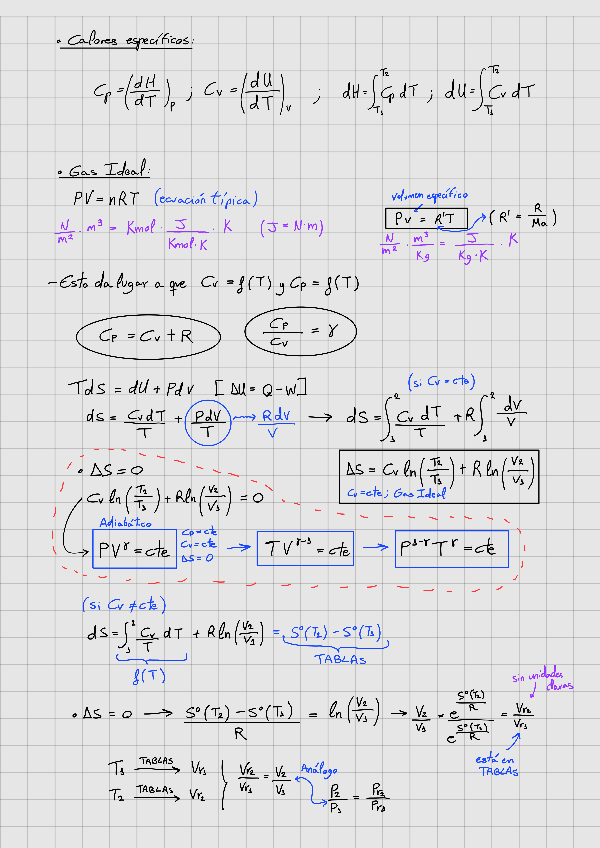 • Calores específicos:
Cp = (dH/dT)p ; Cv = (dU/dT)v ; dH = ∫_{T1}^{T2} Cp dT ; dU = ∫_{T1}^{T2} Cv dT
• Gas Ideal:
PV = nRT (ecuación típica)
N/m² · m³ = Kmol · J/Kmol·K · K (J = N·m)
volumen específico
Pv = R'T (R' = R/Ma)
N/m² · m³/Kg = J/Kg·K · K
- Esto da lugar a que Cv = f(T) y Cp = f(T)
Cp = Cv + R
Cp/Cv = γ
TdS = dU + Pdv [ΔU = Q - W]
(si Cv = cte)
dS = CvdT/T + PdV/T → RdV/V → dS = ∫_1^2 Cv dT/T + R∫_1^2 dV/V
• ΔS = 0
ΔS = Cv ln(T2/T1) + R ln(V2/V1)
Cv = cte ; Gas Ideal
Cv ln(T2/T1) + R ln(V2/V1) = 0
Adiabático
PV^γ = cte
Cp = cte
Cv = cte
ΔS = 0
→ TV^{γ-1} = cte → P^{1-γ} T^γ = cte
(si Cv ≠ cte)
dS = ∫_1^2 Cv/T dT + R ln(V2/V1) = S°(T2) - S°(T1)
f(T)
TABLAS
sin unidades claras
• ΔS = 0 → S°(T2) - S°(T1)/R = ln(V2/V1) → V2/V1 = e^{S°(T2)/R}/e^{S°(T1)/R} = Vr2/Vr1
está en TABLAS
T1 TABLAS → Vr1
T2 TABLAS → Vr2
Vr2/Vr1 = V2/V1
Análogo
P2/P1 = Pr2/Pr1